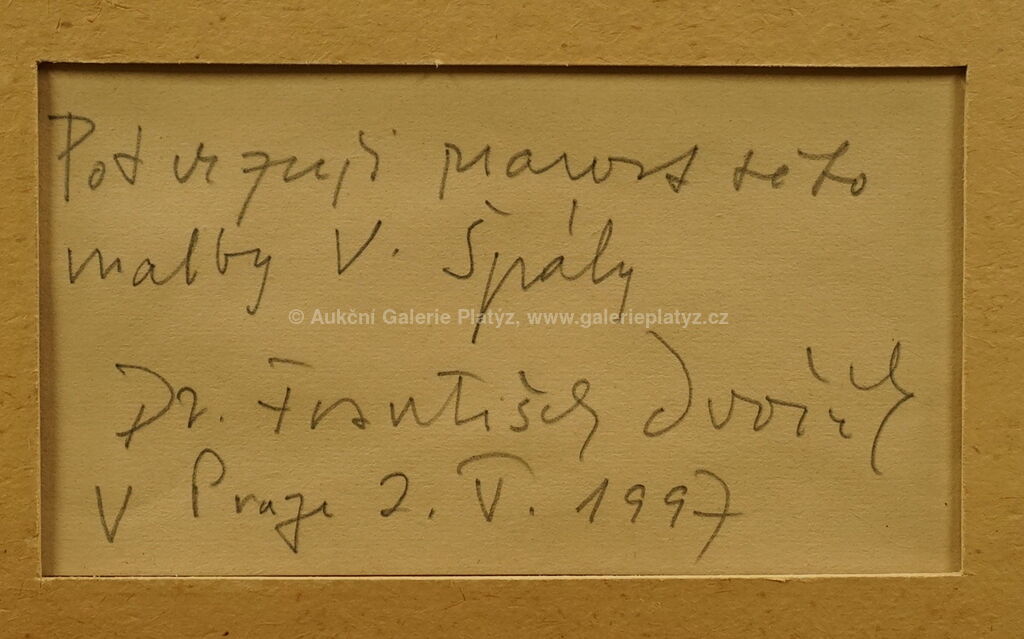 Potvrzuji pravost této
malby V. Špály
© Aukční Galerie Platýz, www.galerieplatyz.cz
Dr. František Dvořák
V Praze 2. V. 1997